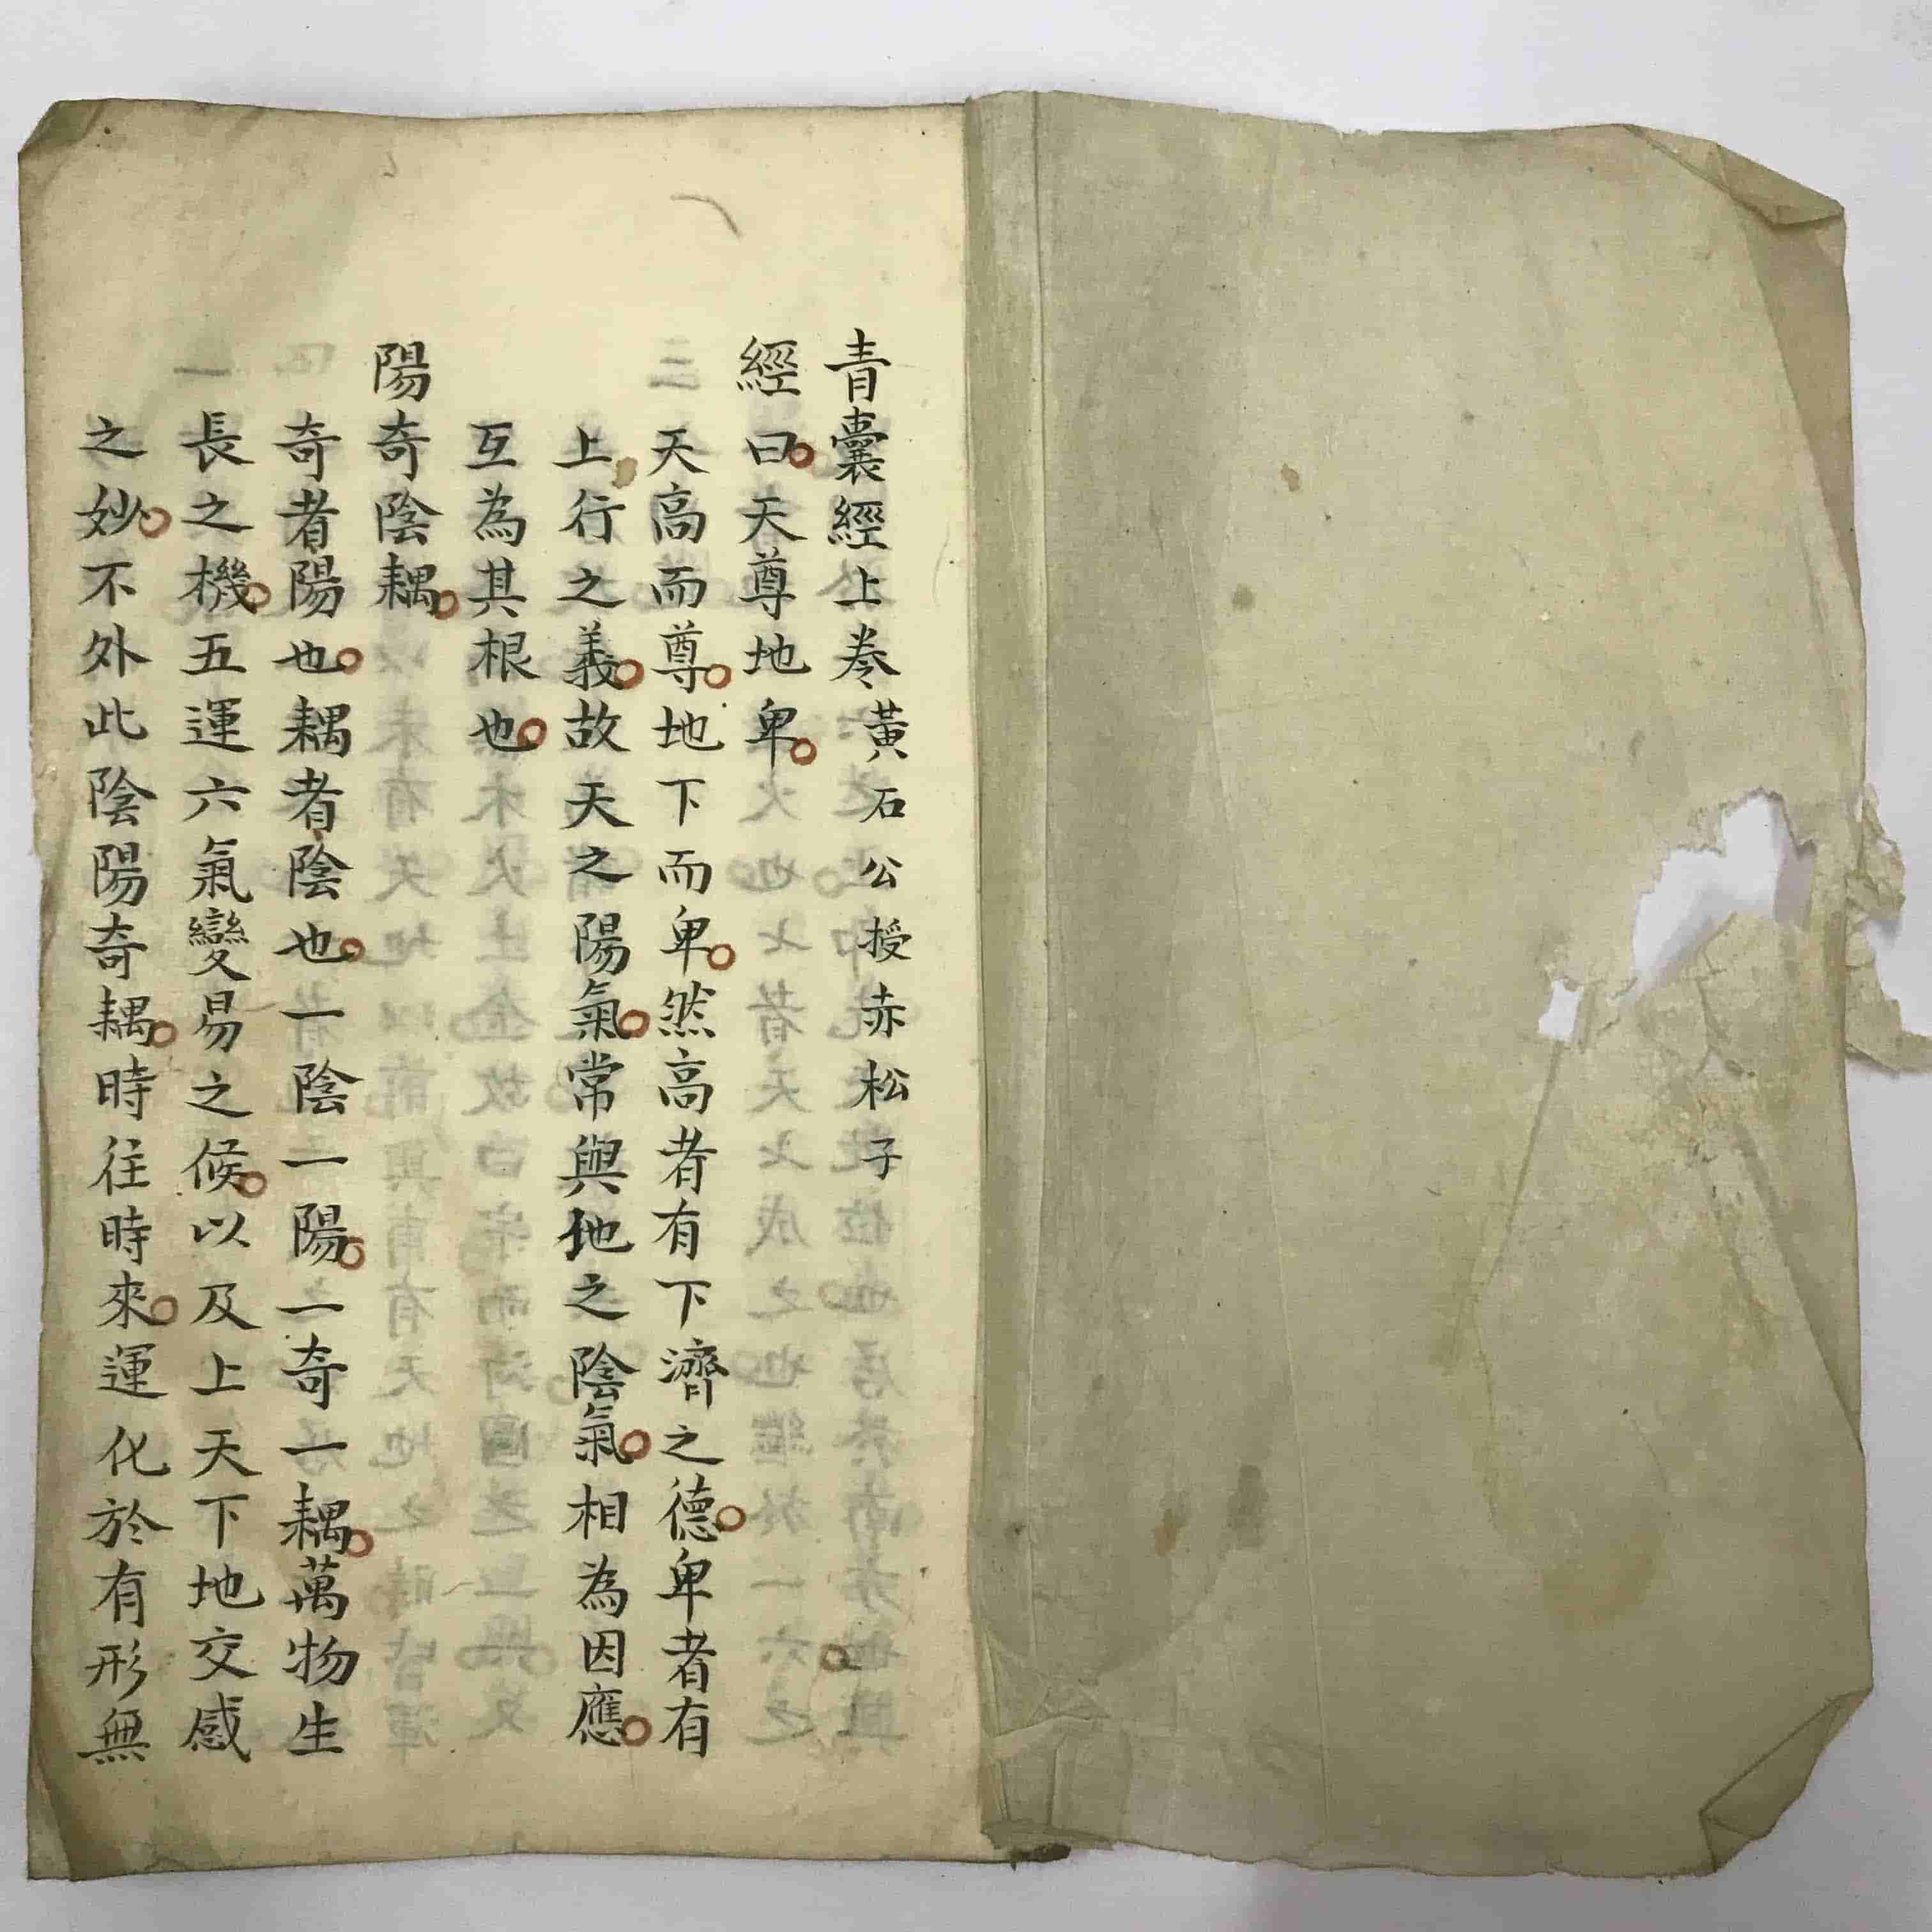 青囊經上卷黃石公授赤松子
經曰。天尊地卑。
天高而尊。地下而卑。然高者有下濟之德。卑者有
上行之義。故天之陽氣。常與地之陰氣。相為因應。
互為其根也。
陽奇陰耦。
奇者陽也。耦者陰也。一陰一陽。一奇一耦。萬物生
長之機。五運六氣變易之候。以及上天下地交感
之妙。不外此陰陽奇耦。時往時來。運化於有形無